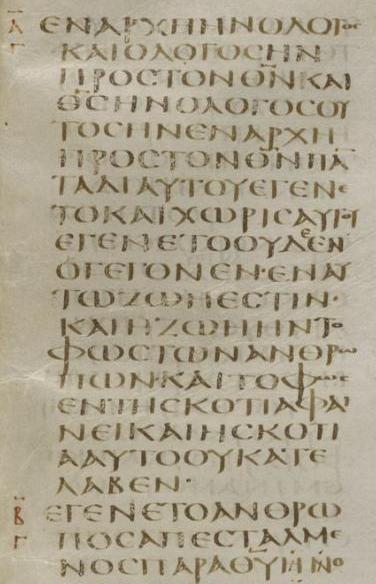 Α̅ ΕΝΑΡΧΗΗΝΟΛΟΓΟϹ
Γ ΚΑΙΟΛΟΓΟϹΗΝ
ΠΡΟϹΤΟΝΘ̅Ν̅ΚΑΙ
Θ̅Ϲ̅ΗΝΟΛΟΓΟϹΟΥ
ΤΟϹΗΝΕΝΑΡΧΗ
ΠΡΟϹΤΟΝΘ̅Ν̅ΠΑ
ΤΑΔΙΑΥΤΟΥΕΓΕΝΕ
ΤΟΚΑΙΧΩΡΙϹΑΥΤΟΥ
ΕΓΕΝΕΤΟΟΥΔΕΕΝ
ΟΓΕΓΟΝΕΝ·ΕΝΑΥ
ΤΩΖΩΗΕϹΤΙΝ·
ΚΑΙΗΖΩΗΗΝΤΟ
ΦΩϹΤΩΝΑΝΘΡΩ
ΠΩΝ·ΚΑΙΤΟΦΩϹ
ΕΝΤΗϹΚΟΤΙΑΦΑΙ
ΝΕΙΚΑΙΗϹΚΟΤΙ
ΑΑΥΤΟΟΥΚΑΤΕ
ΛΑΒΕΝ·
Β ΕΓΕΝΕΤΟΑΝΘΡΩ
Γ ΠΟϹΑΠΕϹΤΑΛΜΕ
ΝΟϹΠΑΡΑΘ̅Υ̅ΗΝΟ